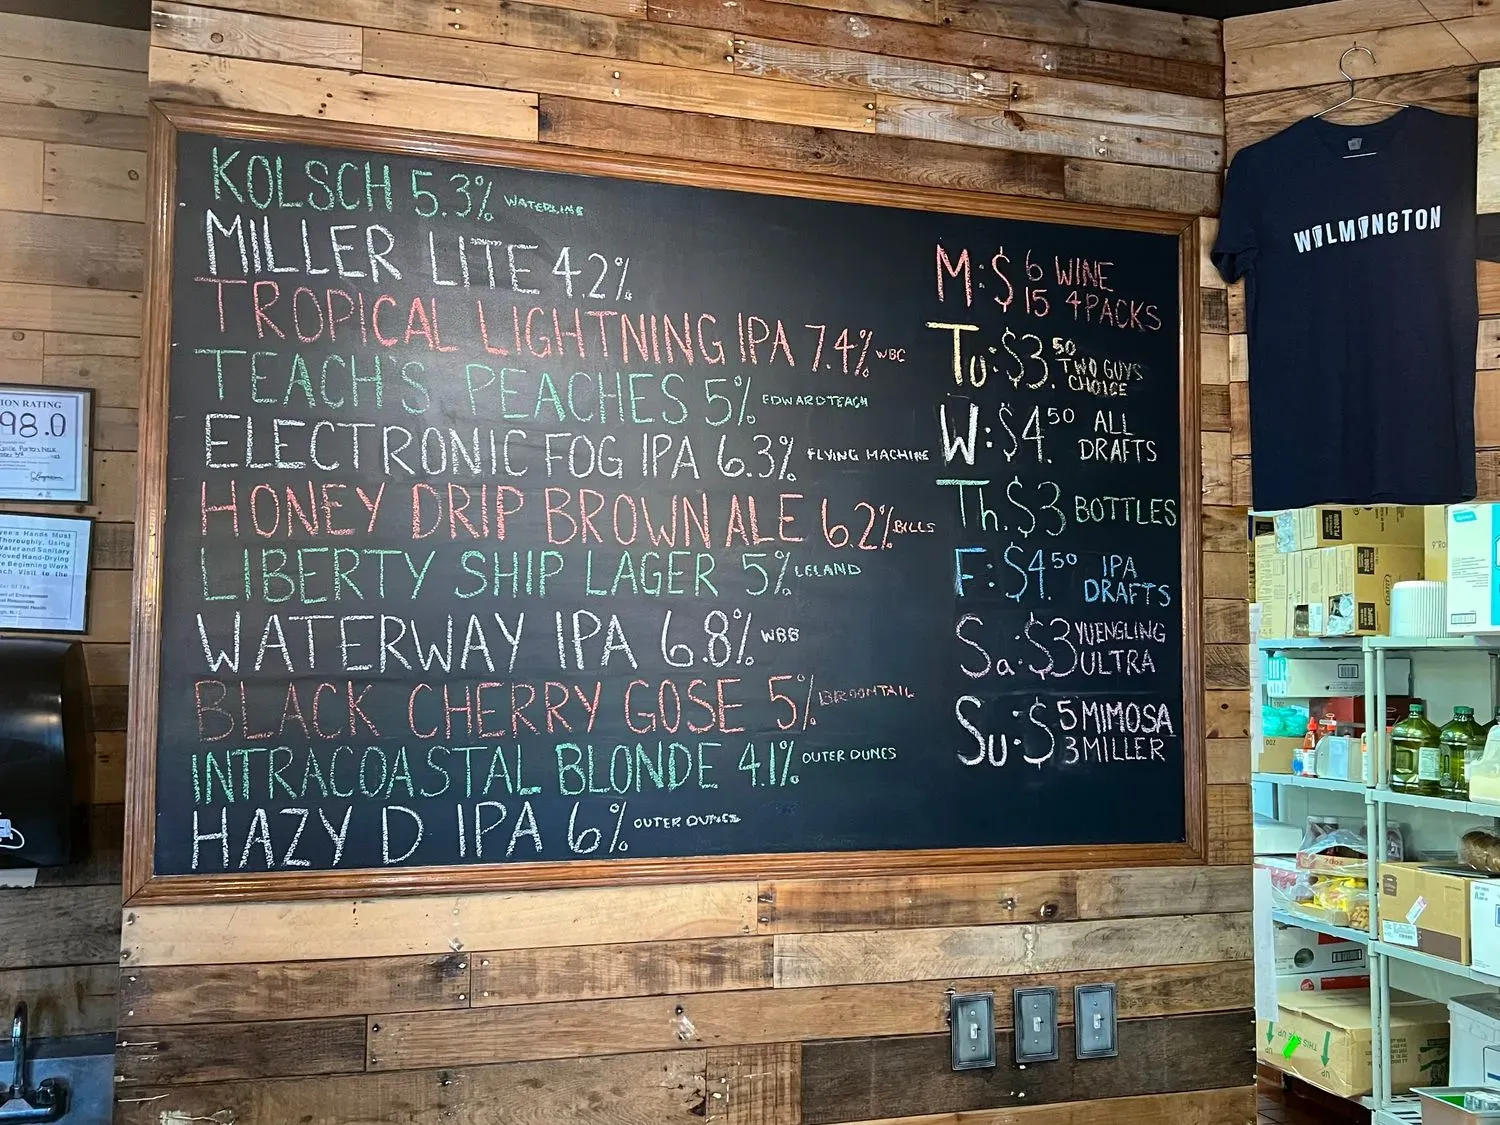 KOLSCH 5.3% WATERLINE
MILLER LITE 4.2%
TROPICAL LIGHTNING IPA 7.4% WBC
TEACH'S PEACHES 5% EDWARD TEACH
ELECTRONIC FOG IPA 6.3% FLYING MACHINE
HONEY DRIP BROWN ALE 6.2% BILLS
LIBERTY SHIP LAGER 5% LELAND
WATERWAY IPA 6.8% WBB
BLACK CHERRY GOSE 5% BROOMTAIL
INTRACOASTAL BLONDE 4.1% OUTER DUNES
HAZY D IPA 6% OUTER DUNES
M: $ 6 WINE
15 4PACKS
Tu: $3.50 TWO GUYS
CHOICE
W: $4.50 ALL
DRAFTS
Th. $3 BOTTLES
F: $4.50 IPA
DRAFTS
Sa: $3 YUENGLING
ULTRA
Su: $ 5 MIMOSA
3 MILLER
WILMINGTON
ION RATING
98.0
yee's Hands Must
Thoroughly, Using
Water and Sanitary
oved Hand-Drying
e Beginning Work
ach Visit to the
THIS SIDE UP
UP